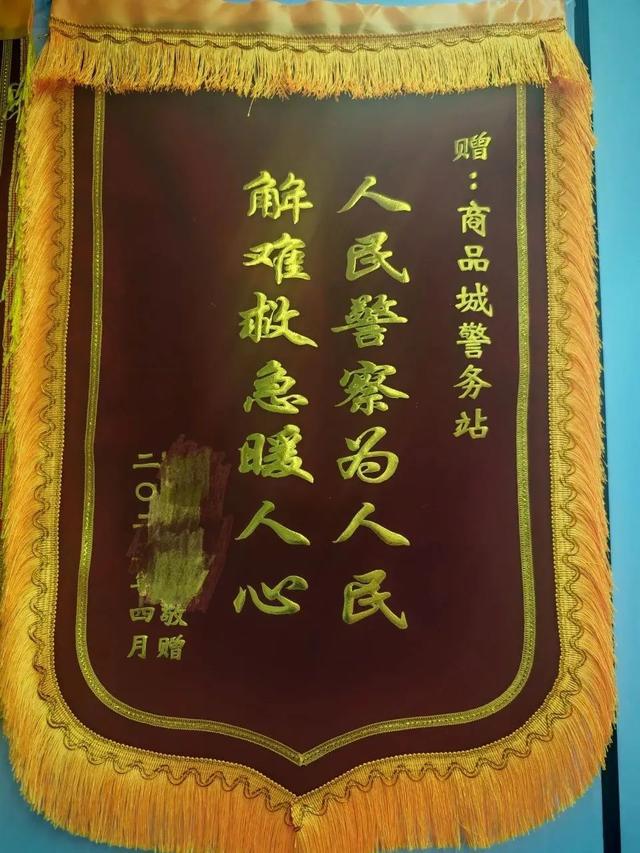 赠：商品城警务站
人民警察为人民
解难救急暖人心
敬赠
二〇二 年四月